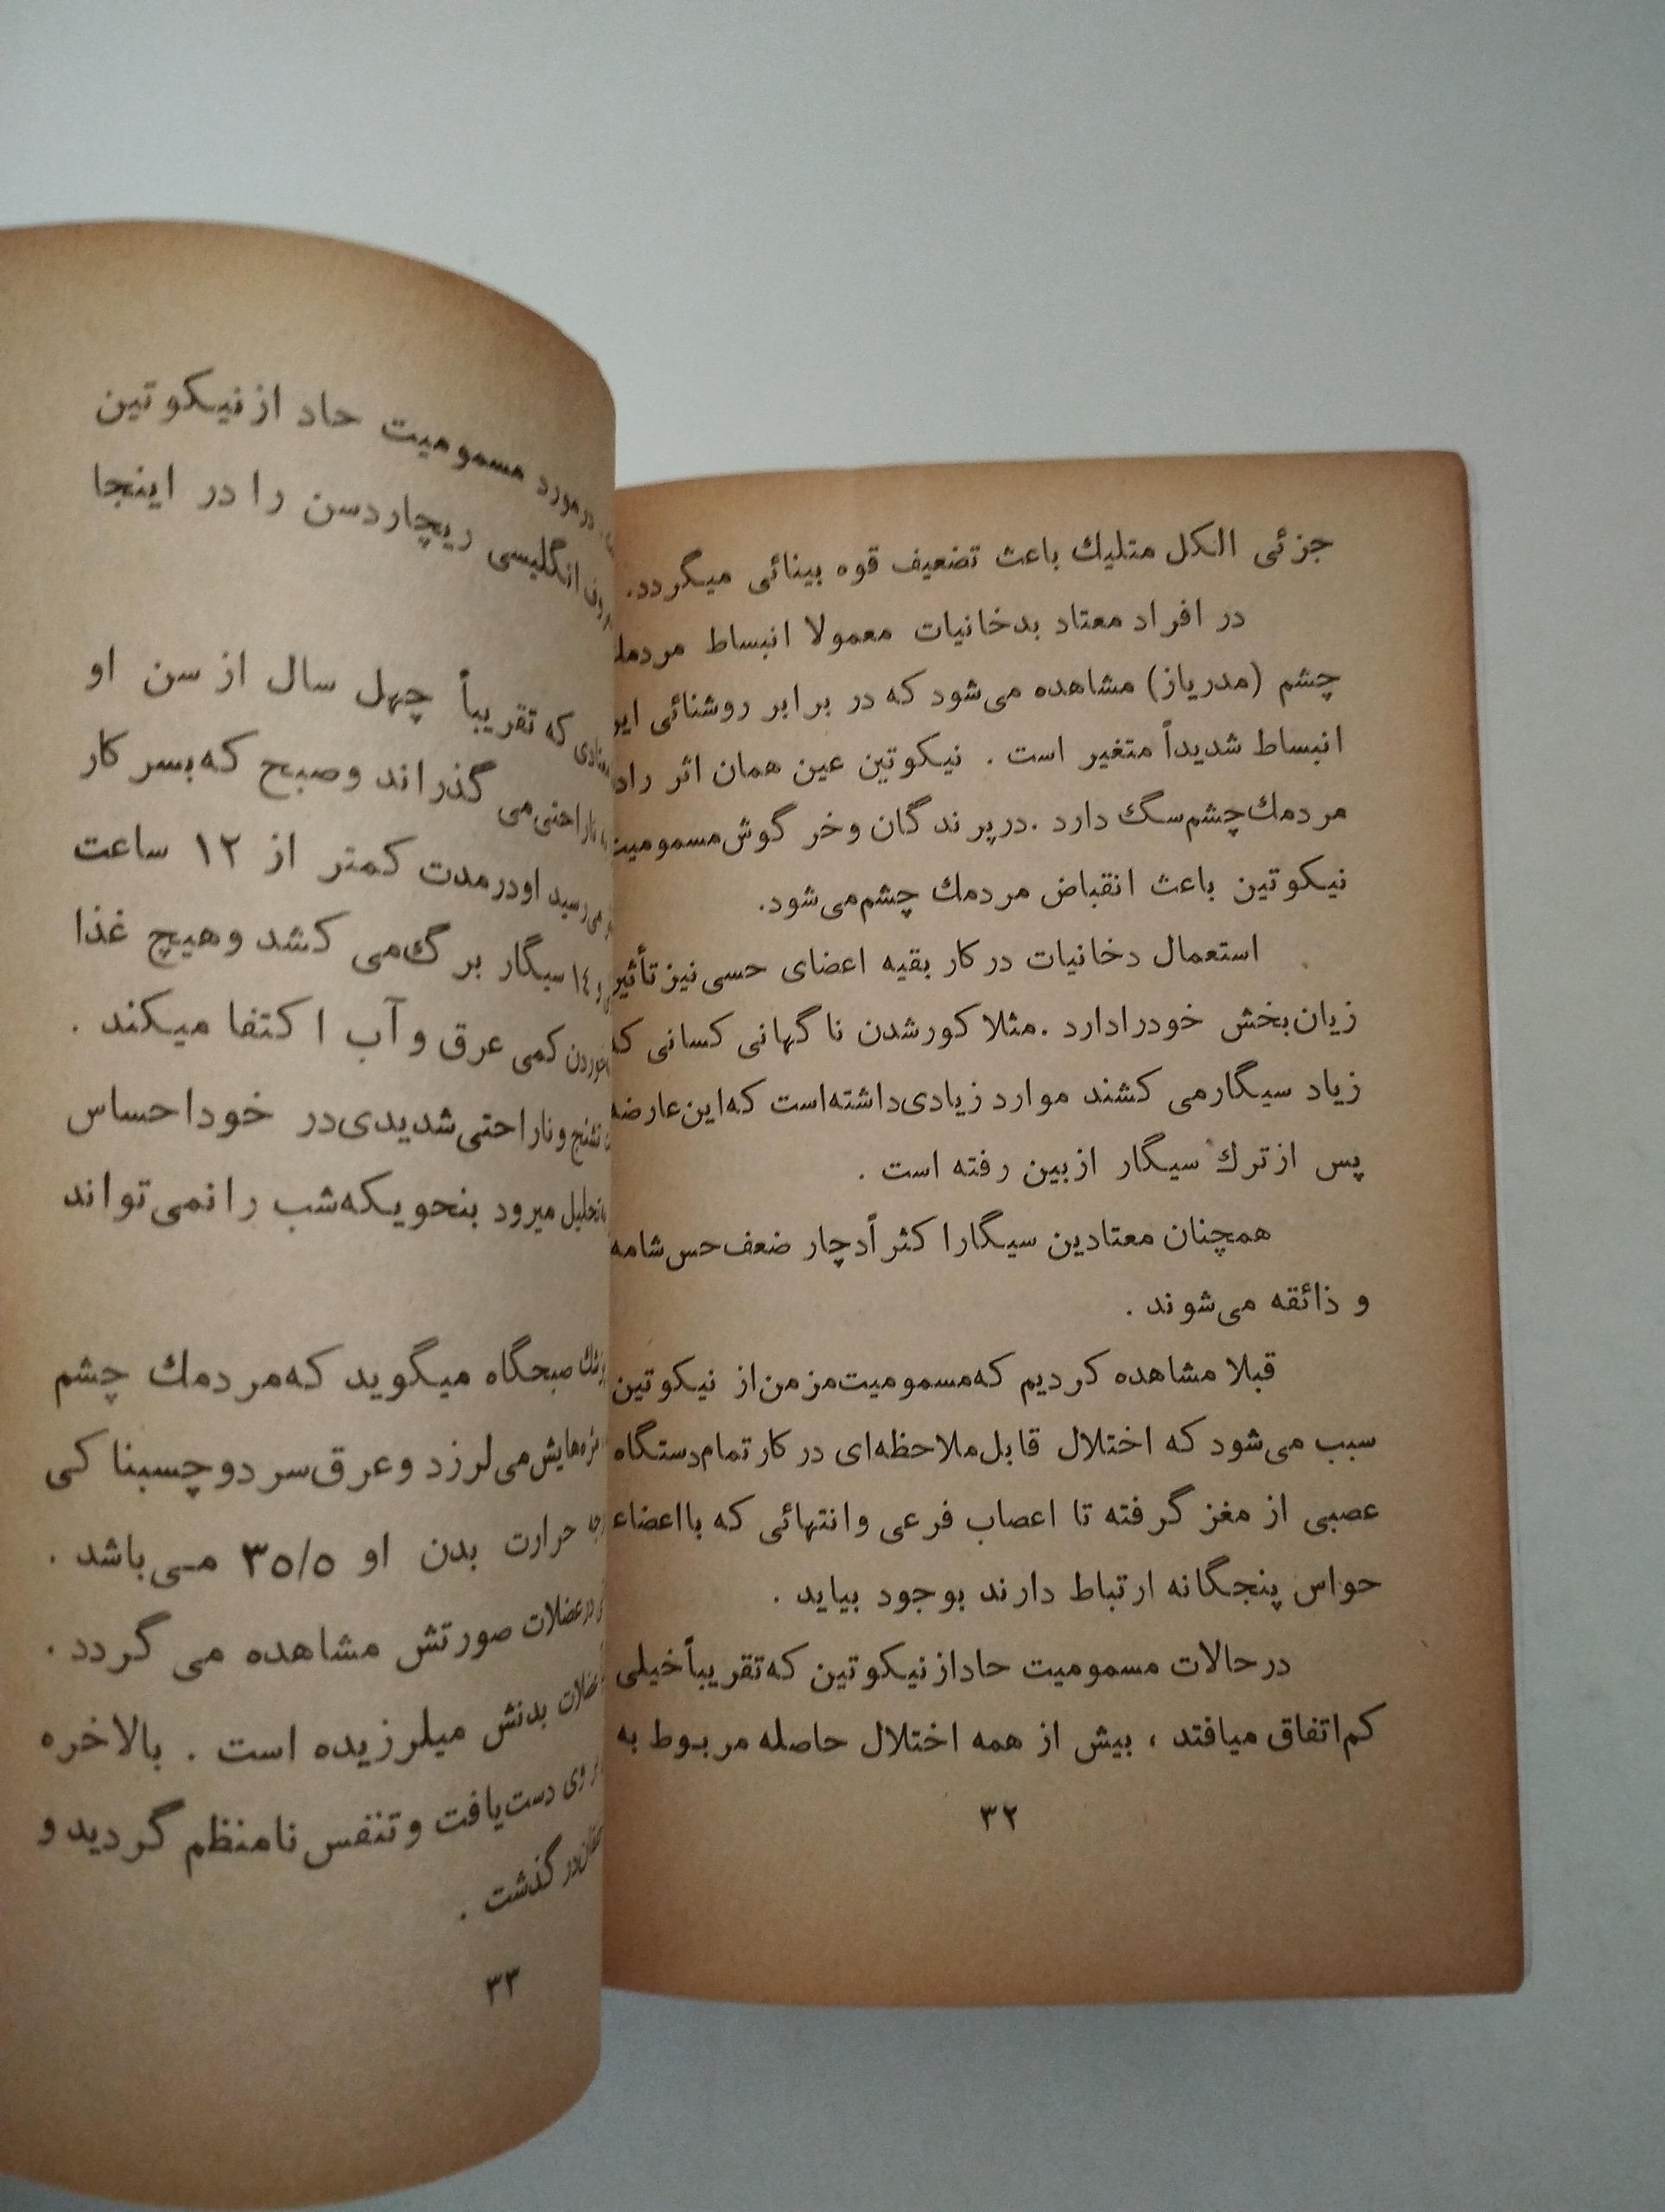 جزئی الکل متلیك باعث تضعیف قوه بینائی میگردد.
در افراد معتاد بدخانیات معمولا انبساط
چشم (مدریاز) مشاهده می‌شود که در برابر روشنائی
انبساط شدیداً متغیر است . نیکوتین عین همان اثر
مردمك چشم سگ دارد .در پرندگان و خرگوش
نیکوتین باعث انقباض مردمك چشم می‌شود.
استعمال دخانیات در کار بقیه اعضای حسی نیز تأثیر
زیان‌بخش خود را دارد .مثلا کور شدن ناگهانی کسانی
زیاد سیگار می کشند موارد زیادی داشته است که این عارضه
پس از ترك سیگار از بین رفته است .
همچنان معتادین سیگار اکثراً دچار ضعف حس شامه
و ذائقه می‌شوند .
قبلا مشاهده کردیم که مسمومیت مزمن از نیکوتین
سبب می‌شود که اختلال قابل ملاحظه‌ای در کار تمام دستگاه
عصبی از مغز گرفته تا اعصاب فرعی و انتهائی که با اعضاء
حواس پنجگانه ارتباط دارند بوجود بیاید .
در حالات مسمومیت حاد از نیکوتین که تقریباً خیلی
کم اتفاق میافتد ، بیش از همه اختلال حاصله مربوط به
۳۲
درمورد مسمومیت حاد از نیکوتین
انگلیسی ریچاردسن را در اینجا
که تقریباً چهل سال از سن او
می گذراند و صبح که بسر کار
می‌رسید او در مدت کمتر از ۱۲ ساعت
۱٤ سیگار برگ می کشد و هیچ غذا
کمی عرق و آب اکتفا میکند .
تشنج و ناراحتی شدیدی در خود احساس
تحلیل میرود بنحویکه شب را نمی تواند
صبحگاه میگوید که مردمك چشم
می لرزد و عرق سرد و چسبناکی
حرارت بدن او ۳۵/۵ می باشد .
در عضلات صورتش مشاهده می گردد .
بدنش میلرزیده است . بالاخره
دست یافت و تنفس نامنظم گردید و
در گذشت .
۳۳